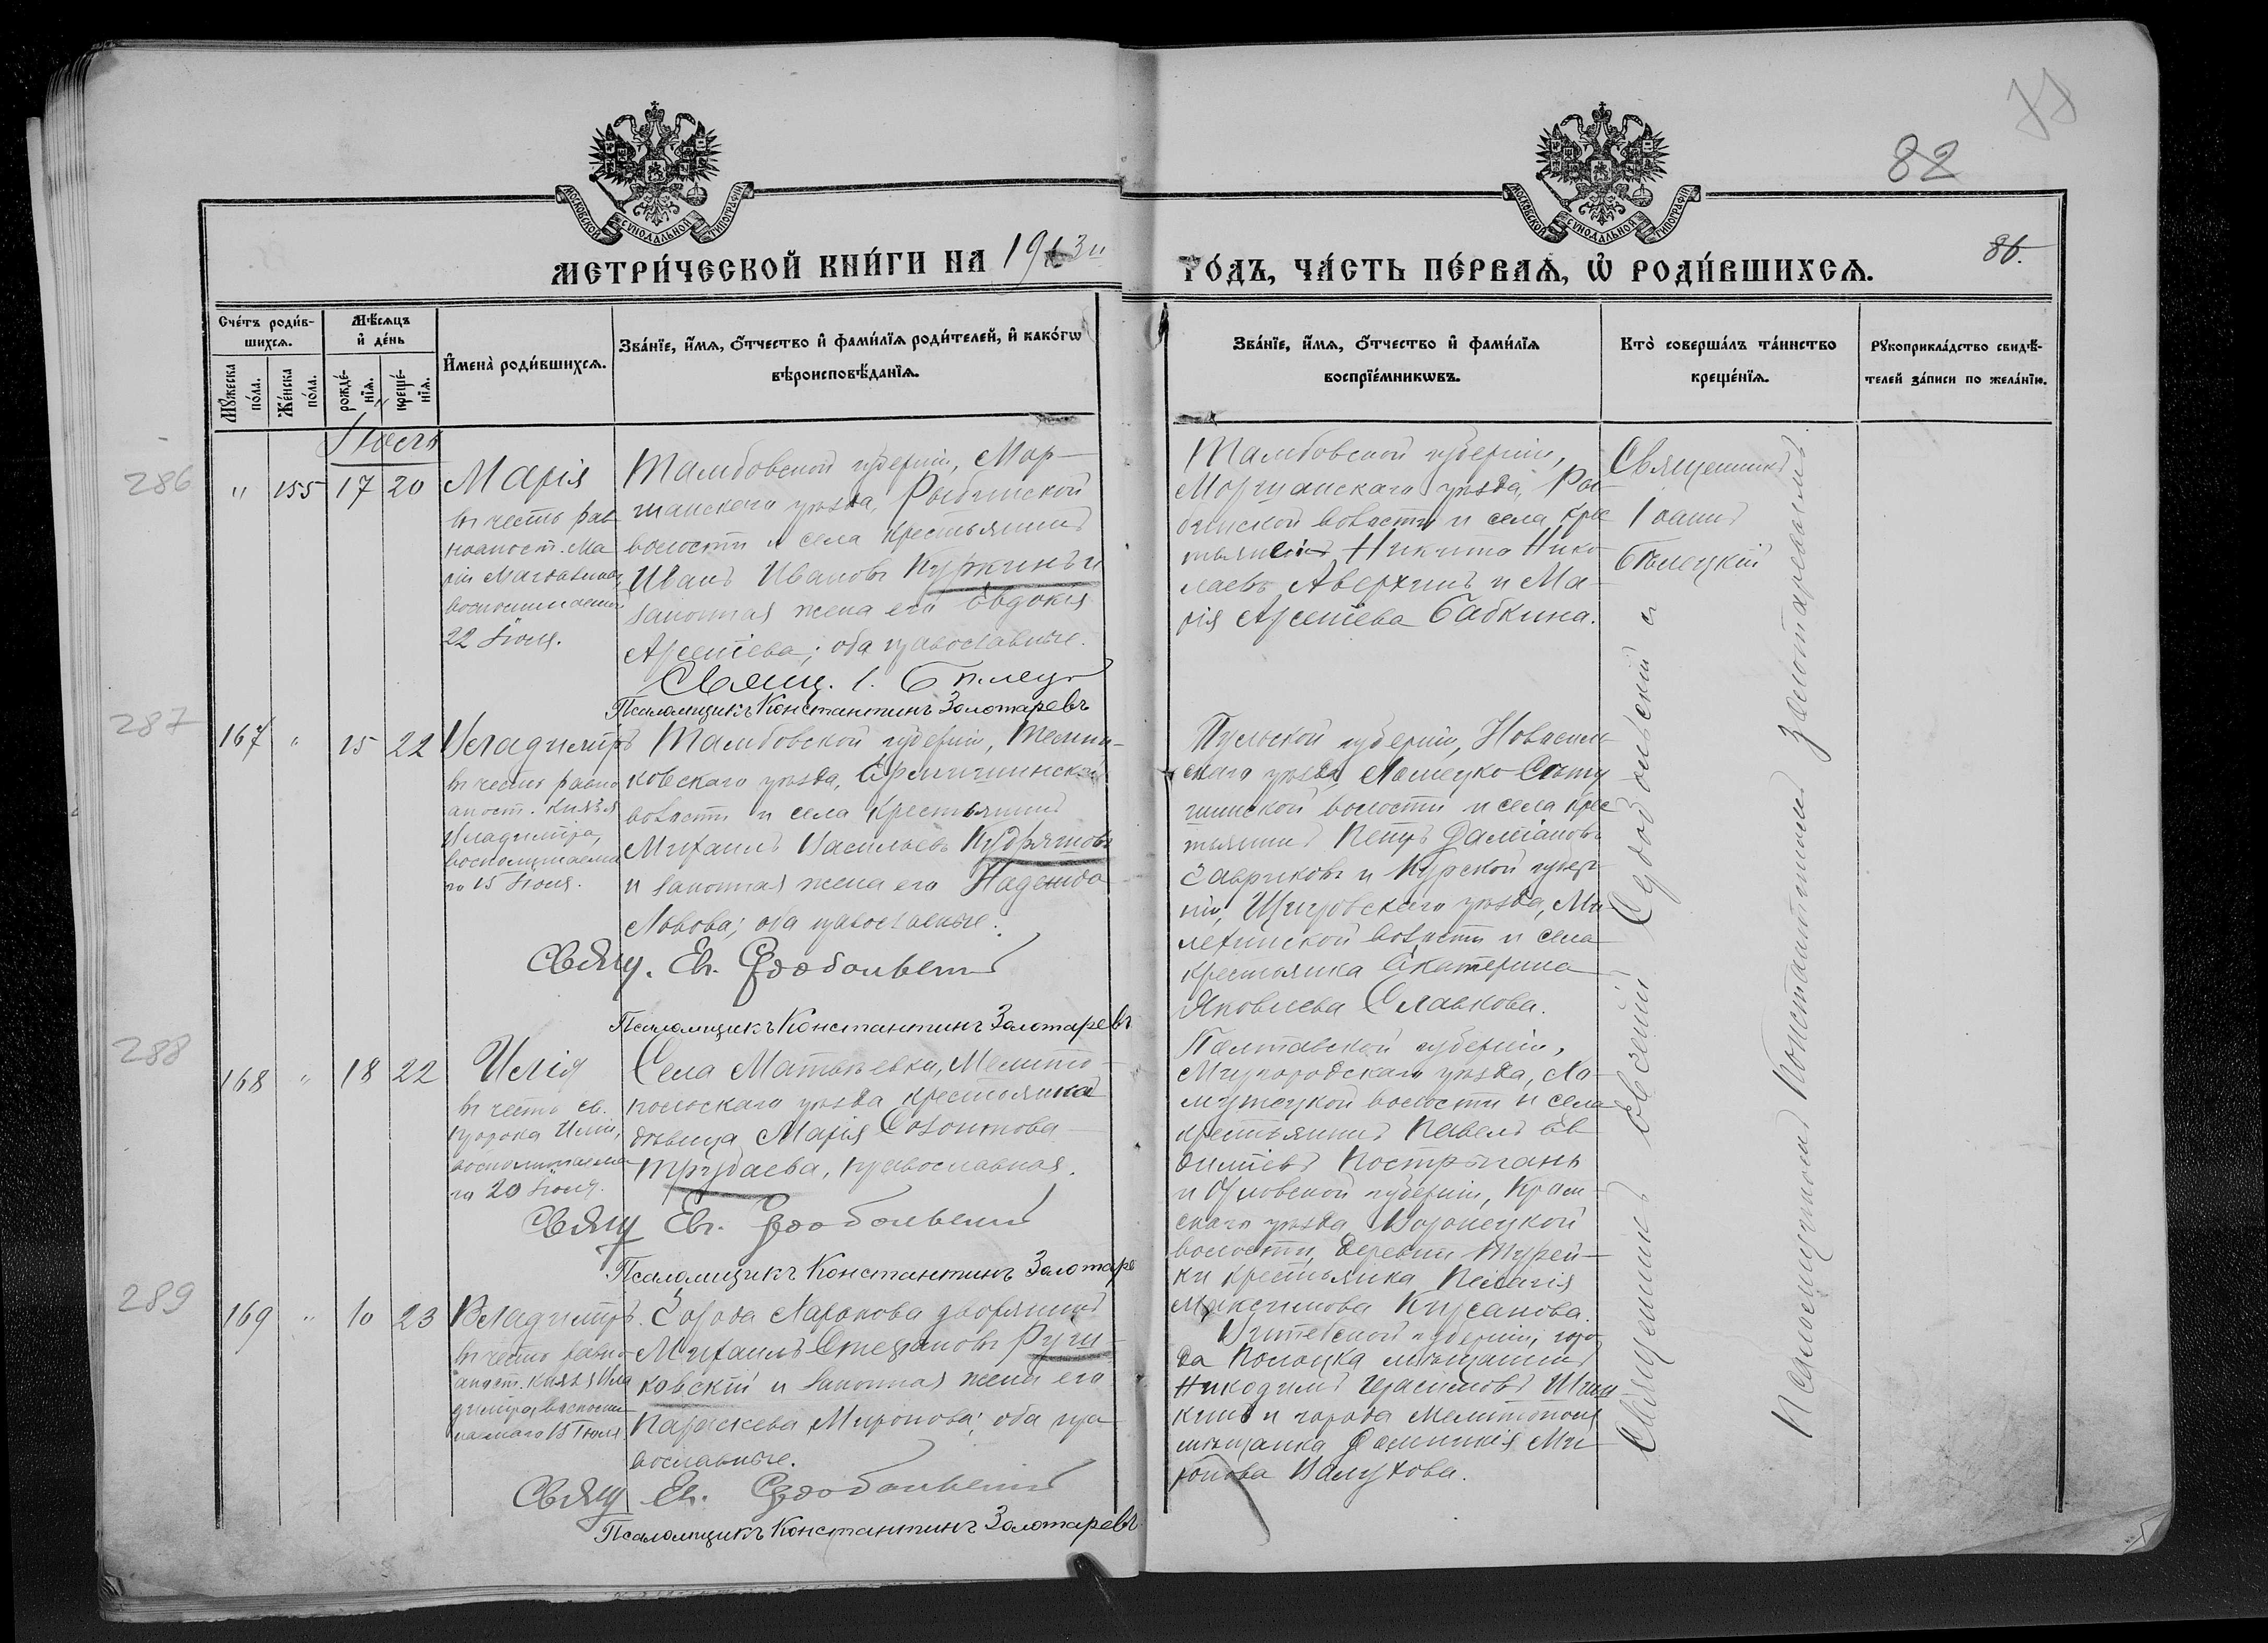 82
86.
МОСКОВСКОЙ СѴНОДАЛЬНОЙ ТИПОГРАФІИ
МОСКОВСКОЙ СѴНОДАЛЬНОЙ ТИПОГРАФІИ
МЕТРИ́ЧЕСКОЙ КНИ́ГИ НА 1913й
ГО́ДЪ, ЧА́СТЬ ПЕ́РВАѦ, Ѡ҆ РОДИ́ВШИХСѦ.
Сче́тъ роди́в-
шихсѧ.
Мꙋ́жеска
по́ла.
Же́нска
по́ла.
Мѣ́сѧцъ
и҆ де́нь
рожде́-
нїѧ.
креще́-
нїѧ.
И҆мена̀ роди́вшихсѧ.
Зва́нїе, и҆́мѧ, ѻ҆́тчество и҆ фами́лїѧ роди́телей, и҆ како́гѡ
вѣроисповѣ́данїѧ.
Зва́нїе, и҆́мѧ, ѻ҆́тчество и҆ фами́лїѧ
воспрїе́мникѡвъ.
Кто̀ соверша́лъ та́инство
креще́нїѧ.
Рꙋкоприкла́дство свидѣ́-
телей за́писи по жела́нїю.
286
" 155 17 20
Марія
въ честь рав
ноапост. Ма
ріи Магдалины
22 Іюля.
Тамбовской губерніи, Мор-
шанскаго уѣзда, Рыбинской
волости и села крестьянинъ
Иванъ Ивановъ Куркинъ и
законная жена его Евдокія
Арсеніева; оба православные.
Свящ. І. Бѣлец
Псаломщикъ Константинъ Золотаревъ
Тамбовской губерніи,
Моршанскаго уѣзда, Ры-
бинской волости и села крес
тьянинъ Никита Нико-
лаевъ Аверхинъ и Ма-
рія Арсеніева Бабкина.
Священникъ
Іоаннъ
Бѣлецкій
287
167 " 15 22
Владиміръ
въ честь равно
апост. князя
Владиміра,
воспоминаема
го 15 Іюля.
Тамбовской губерніи, Темни-
ковскаго уѣзда,
волости и села крестьянинъ
Михаилъ Васильевъ Кудряшовъ
и законная жена его Надежда
Львова; оба православные.
Свящ. Ев. Сдобольскій
Псаломщикъ Константинъ Золотаревъ
Тульской губерніи, Новосиль-
скаго уѣзда,
волости и села крес
тьянинъ Петръ Даміановъ
Гавриковъ и Курской губер-
ніи, Щигровскаго уѣзда, Ми-
лехинской волости и села
крестьянка Екатерина
Яковлева Славкова.
288
168 " 18 22
Илія
въ честь св.
пророка Иліи,
воспоминаема
го 20 Іюля.
Села Матвѣевки, Мелито-
польскаго уѣзда крестьянка
дѣвица Марія Созонтова
Трубаева, православная.
Свящ Ев. Сдобольскій
Псаломщикъ Константинъ Золотаре
Полтавской губерніи,
Миргородскаго уѣзда, Хо-
мутецкой волости и села
крестьянинъ Павелъ Ев
Костриганъ
и Орловской губерніи, Кром-
скаго уѣзда,
волости, деревни
ки крестьянка Пелагія
Максимова Кирсанова.
289
169 " 10 23
Владиміръ
въ честь равно-
апост. князя Вла
диміра, воспоми-
наемаго 15 Іюля
Города Харькова дворянинъ
Михаилъ Стефановъ Руш-
ковскій и законная жена его
Параскева Миронова; оба пра-
вославные.
Свящ Ев. Сдобольскій
Псаломщикъ Константинъ Золотаревъ.
Витебской губерніи, горо-
да Полоцка мѣщанинъ
Никодимъ Герасимовъ
кинъ и города Мелитополя
мѣщанка Домникія Ми-
ронова Валухова.
Священникъ Евгеній Сдобольскій съ
Псаломщикомъ Константиномъ Золотаревымъ.